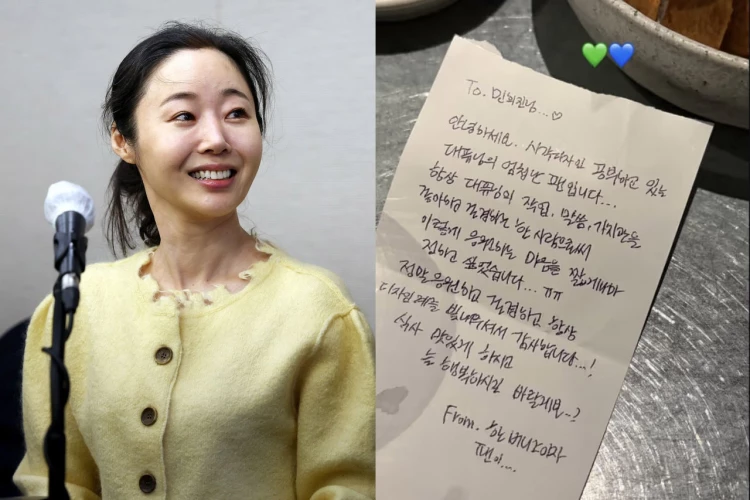 To. 민희진님...♡
안녕하세요. 시각디자인 공부하고 있는
대표님의 엄청난 팬입니다...
항상 대표님의 작업, 말씀, 가치관을
좋아하고 존경하는 한 사람으로서
이렇게 응원하는 마음을 짧게나마
전하고 싶었습니다... ㅠㅠ
정말 응원하고 존경하고 항상
디자인계를 빛내주셔서 감사합니다...!
식사 맛있게 하시고
늘 행복하시길 바랄게요~?
From. 한 버니이자
팬이....